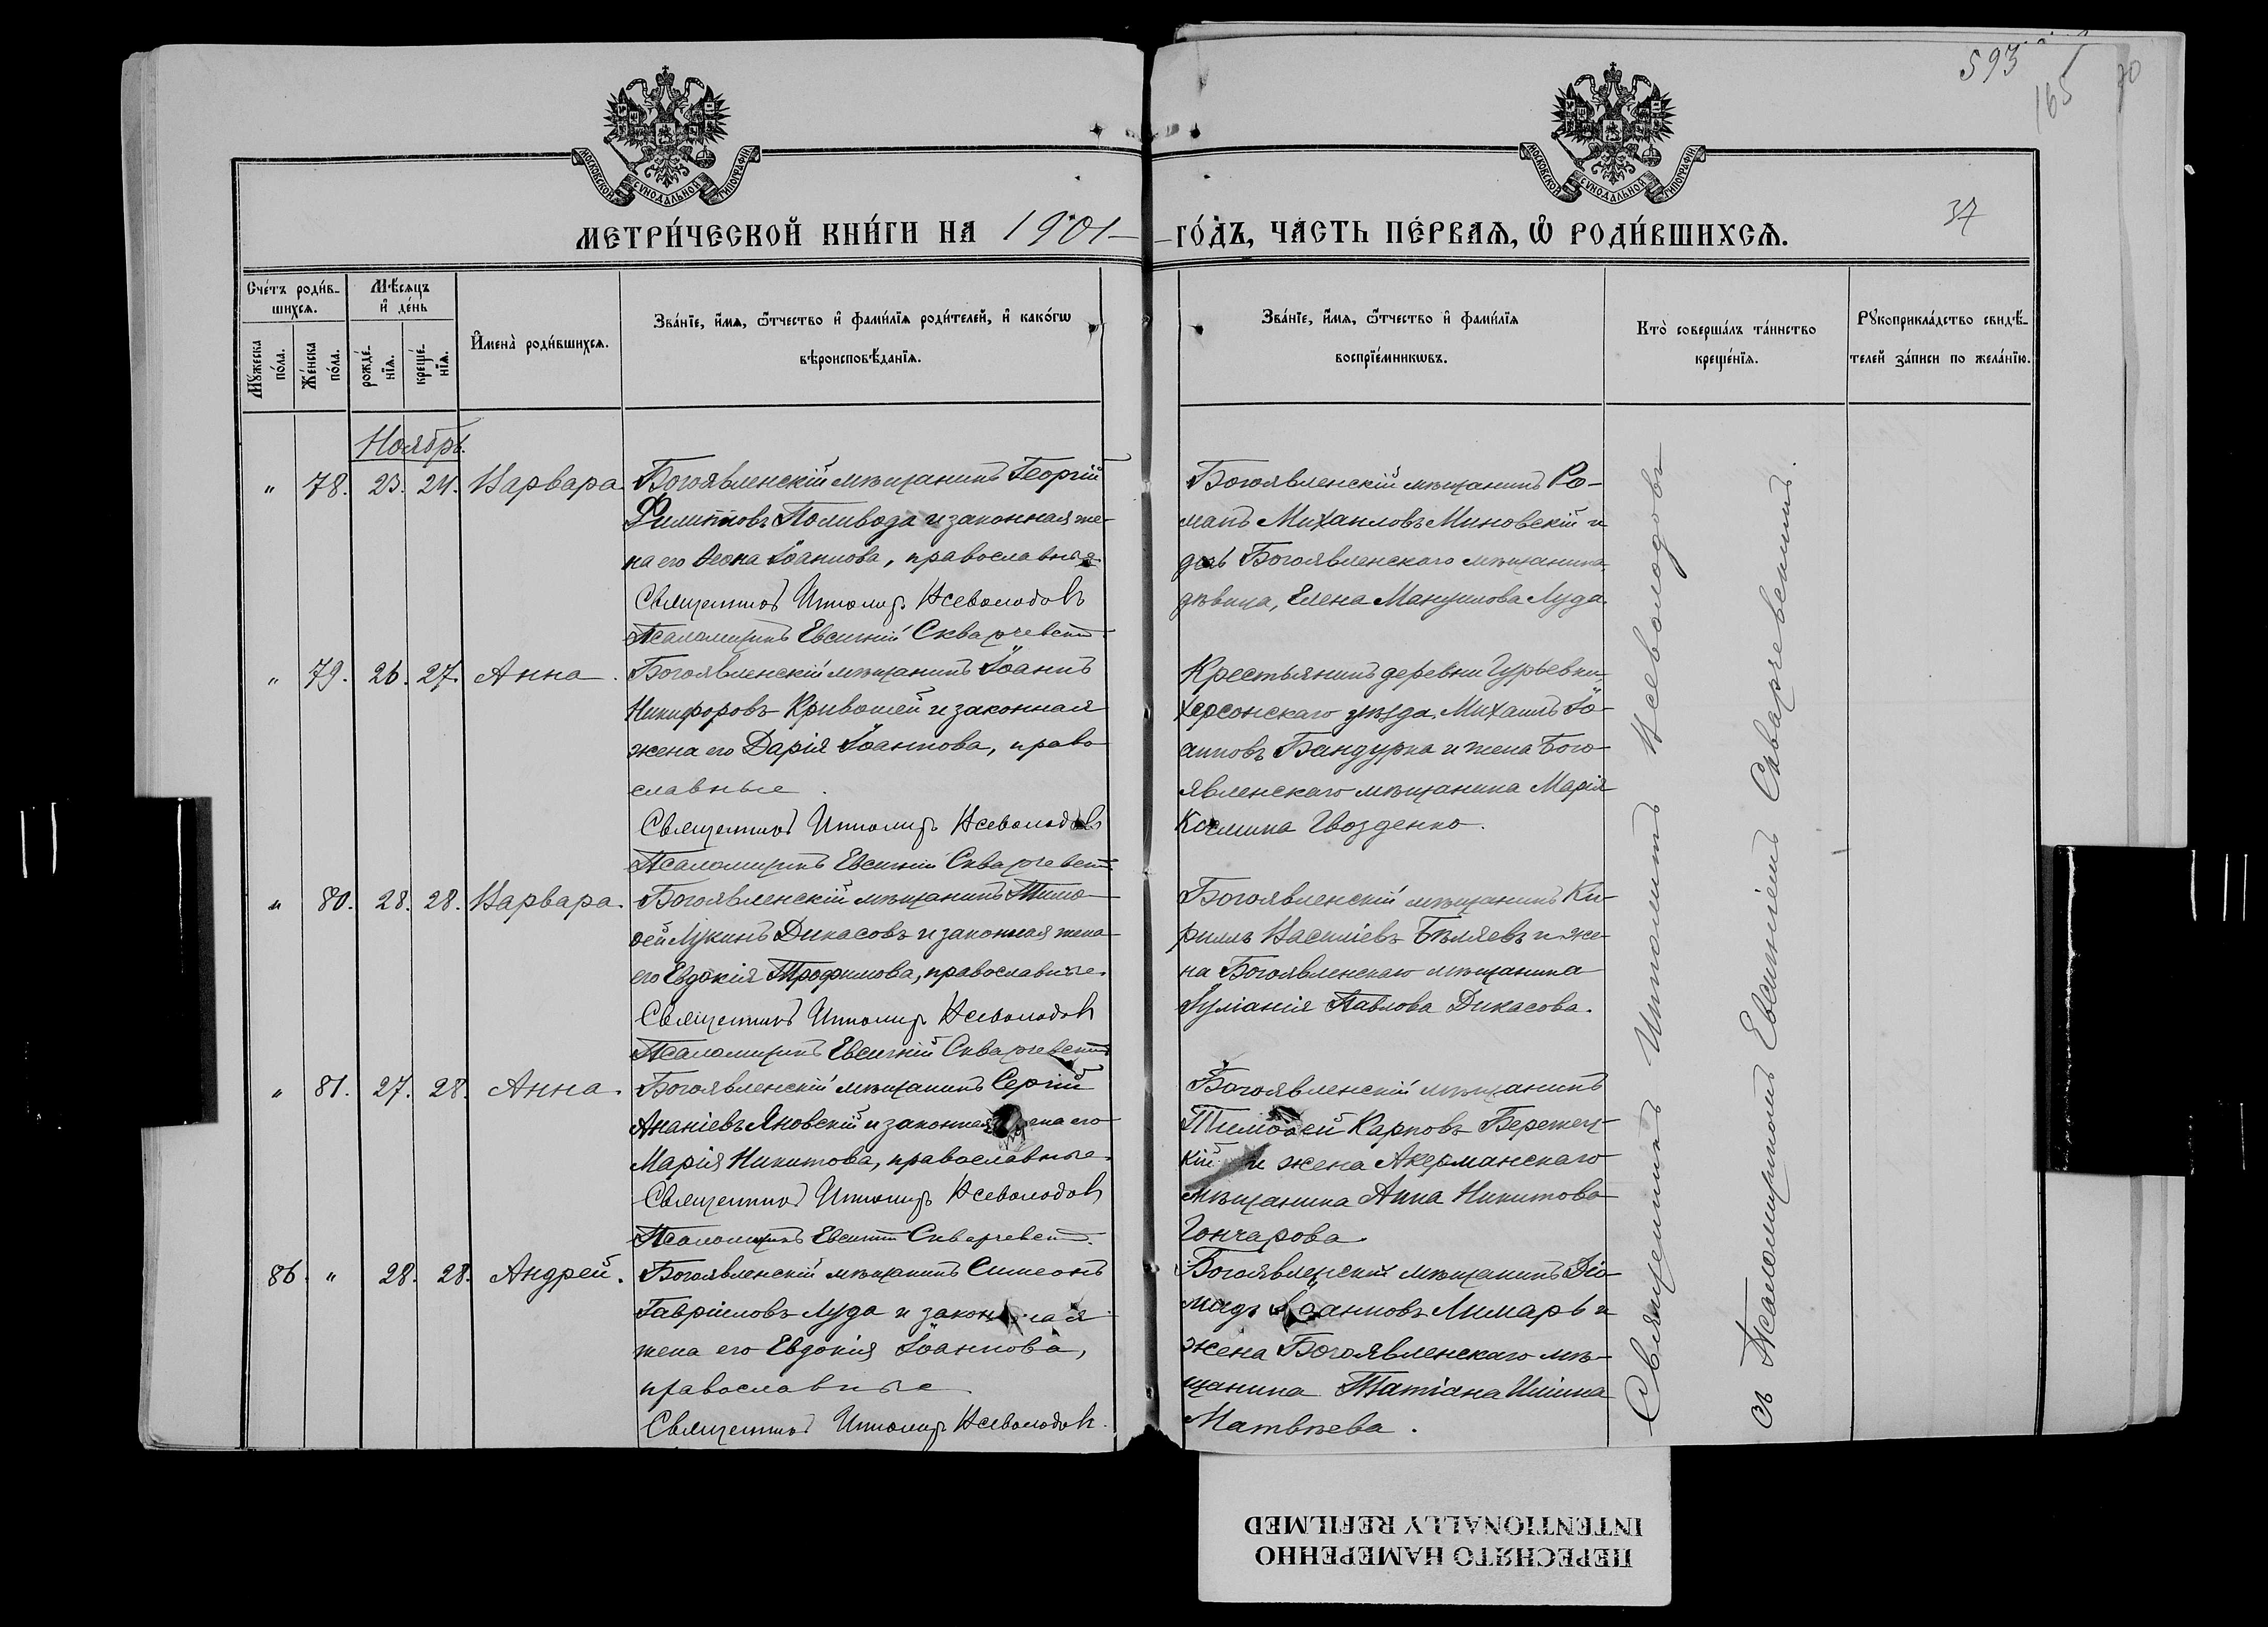 593
165
70
37
МОСКОВСКОЙ СѴНОДАЛЬНОЙ ТИПОГРАФІИ
МОСКОВСКОЙ СѴНОДАЛЬНОЙ ТИПОГРАФІИ
МЕТРИ́ЧЕСКОЙ КНИ́ГИ НА 1901
ГО́ДЪ, ЧА́СТЬ ПЕ́РВАѦ, Ѡ҆ РОДИ́ВШИХСѦ.
Сче́тъ роди́в-
шихсѧ.
Мꙋ́жеска по́ла.
Же́нска по́ла.
Мѣ́сѧцъ
и҆ де́нь
рожде́-
нїѧ.
креще́-
нїѧ.
И҆мена̀ роди́вшихсѧ.
Зва́нїе, и҆́мѧ, ѻ҆́тчество и҆ фами́лїѧ роди́телей, и҆ како́гѡ
вѣроисповѣ́данїѧ.
Зва́нїе, и҆́мѧ, ѻ҆́тчество и҆ фами́лїѧ
воспрїе́мникѡвъ.
Кто̀ соверша́лъ та́инство
креще́нїѧ.
Рꙋкоприкла́дство свидѣ́-
телей за́писи по жела́нїю.
Ноябрь.
" 78. 23. 24. Варвара.
Богоявленскій мѣщанинъ Георгій
Филипповъ Поливода и законная же-
на его Ѳеона Іоаннова, православные
Священникъ Ипполитъ Всеволодовъ
Псаломщикъ Евсигній Скваржевскій
Богоявленскій мѣщанинъ Ро-
манъ Михаиловъ Миновскій и
дочь Богоявленскаго мѣщанина
дѣвица, Елена Мануилова Луда.
" 79. 26. 27. Анна.
Богоявленскій мѣщанинъ Іоаннъ
Никифоровъ Кривошей и законная
жена его Дарія Іоаннова, право
славные.
Священникъ Ипполитъ Всеволодовъ
Псаломщикъ Евсигній Скваржевскій
Крестьянинъ деревни Гурьевки
Херсонскаго уѣзда Михаилъ Іо-
анновъ Бандурка и жена Бого-
явленскаго мѣщанина Марія
Космина Гвозденко.
" 80. 28. 28. Варвара.
Богоявленскій мѣщанинъ Тимо-
ѳей Лукинъ Дикасовъ и законная жена
его Евдокія Трофимова, православные.
Священникъ Ипполитъ Всеволодовъ
Псаломщикъ Евсигній Скваржевскій
Богоявленскій мѣщанинъ Ки-
риллъ Василіевъ Бѣляевъ и же-
на Богоявленскаго мѣщанина
Іуліанія Павлова Дикасова.
" 81. 27. 28. Анна.
Богоявленскій мѣщанинъ Сергій
Ананіевъ Яновскій и законная жена его
Марія Никитова, православные.
Священникъ Ипполитъ Всеволодовъ
Псаломщикъ Евсигній Скваржевскій.
Богоявленскій мѣщанинъ
Тимоѳей Карповъ Бережец-
кій и жена Акерманскаго
мѣщанина Анна Никитова
Гончарова
86. " 28. 28. Андрей.
Богоявленскій мѣщанинъ Симеонъ
Гавріиловъ Луда и законная
жена его Евдокія Іоаннова,
православные
Священникъ Ипполитъ Всеволодовъ.
Богоявленскій мѣщанинъ Діо-
мидъ Іоанновъ Лимарь и
жена Богоявленскаго мѣ-
щанина Татіана Иліина
Матвѣева.
Священникъ Ипполитъ Всеволодовъ
съ Псаломщикомъ Евсигніемъ Скваржевскимъ.
INTENTIONALLY REFILMED
ПЕРЕСНЯТО НАМЕРЕННО